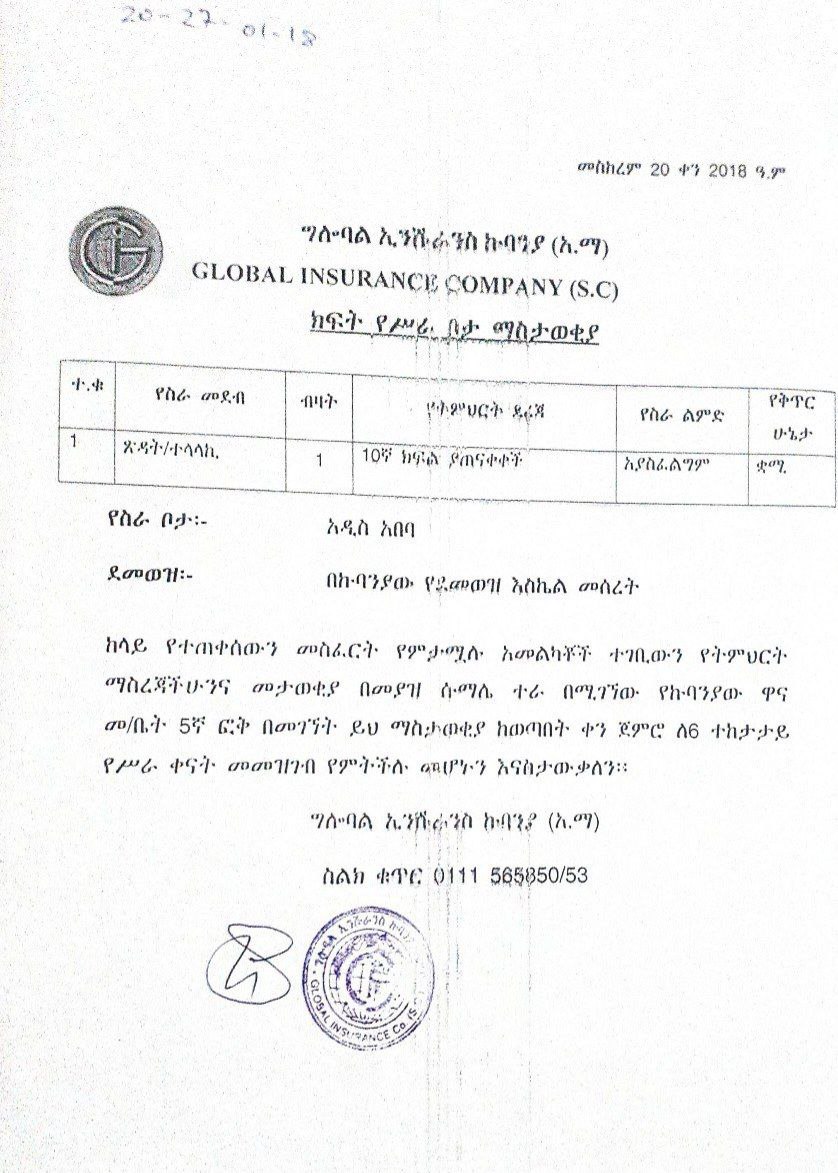 20-27-01-18
መስከረም 20 ቀን 2018 ዓ.ም
ግሎባል ኢንሹራንስ ኩባንያ (አ.ማ)
GLOBAL INSURANCE COMPANY (S.C)
ክፍት የሥራ ቦታ ማስታወቂያ
ተ.ቁ የስራ መደብ ብዛት የትምህርት ደረጃ የስራ ልምድ የቅጥር ሁኔታ
1 ጽዳት/ተላላኪ 1 10ኛ ክፍል ያጠናቀቀች አያስፈልግም ቋሚ
የስራ ቦታ፡- አዲስ አበባ
ደመወዝ፡- በኩባንያው የደመወዝ እስኬል መሰረት
ከላይ የተጠቀሰውን መስፈርት የምታሟሉ አመልካቾች ተገቢውን የትምህርት
ማስረጃችሁንና መታወቂያ በመያዝ ሱማሌ ተራ በሚገኘው የኩባንያው ዋና
መ/ቤት 5ኛ ፎቅ በመገኘት ይህ ማስታወቂያ ከወጣበት ቀን ጀምሮ ለ6 ተከታታይ
የሥራ ቀናት መመዝገብ የምትችሉ መሆኑን እናስታውቃለን፡፡
ግሎባል ኢንሹራንስ ኩባንያ (አ.ማ)
ስልክ ቁጥር 0111 565850/53
ግሎባል ኢንሹራንስ
GLOBAL INSURANCE Co. (S.